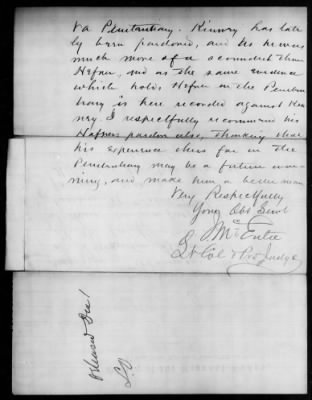 va Penetentiary. Kinnry has late
ly been pardoned, and as he was
much more of a scoundrel than
Hefner, and as the same evidence
which holds Hefner in the Peneten
tiary is here recorded against Kin
nry. I respectfully recommend his
Hefners pardon also, thinking that
his experience thus far in the
Penetentiary may be a future war
ning, and make him a better man
Very Respectfully
Your Obt Servt
McEntee
Lt Col & Pro Judge
Released Dec!